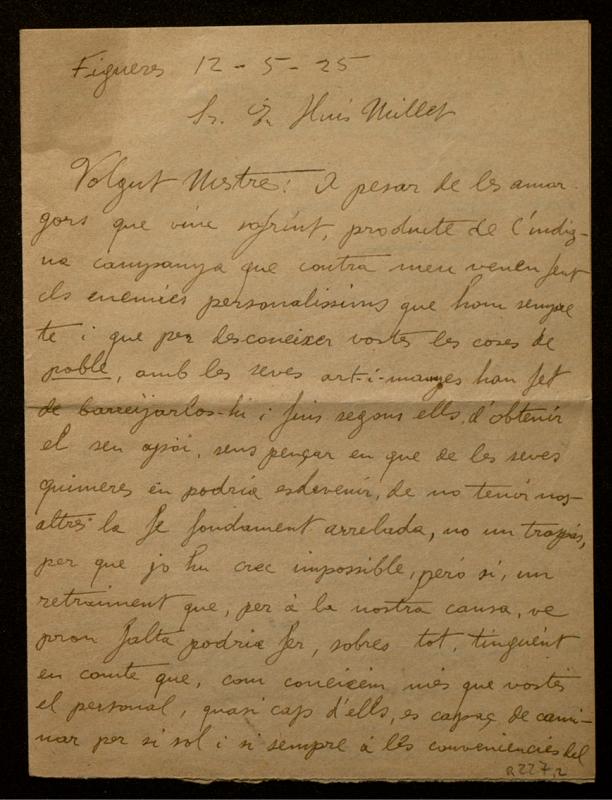 Figueres 12 - 5 - 25
Sr. D. Lluis Millet
Volgut Mestre: A pesar de les amar-
gors que vinc sofrint, producte de l'indig-
na campanya que contra meu venen fent
els enemics personalissims que hom sempre
te i que per desconeixer vostès les coses de
poble, amb les seves art-i-manyes han fet
de barrejarlos-hi i fins segons ells, d'obtenir
el seu apoi, sens pençar en que de les seves
quimeres en podria esdevenir, de no tenir nos-
altres la fe fondament arrelada, no un traspas,
per que jo hu crec impossible, peró si, un
retraiment que, per á la nostra causa, ve
prou falta podria fer, sobres tot, tinguent
en comte que, com coneixém més que vostès
el personal, quasi cap d'ells, es capaç de cami-
nar per si sol i si sempre á les conveniencies del
R 227,2